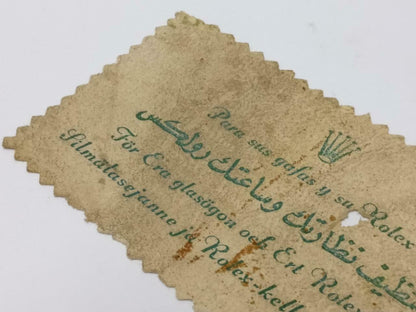 Para sus gafas y su Rolex
تنظيف نظارتك وساعتك رولكس
För Era glasögon och Ert Rolex
Silmälasejanne ja Rolex-kell